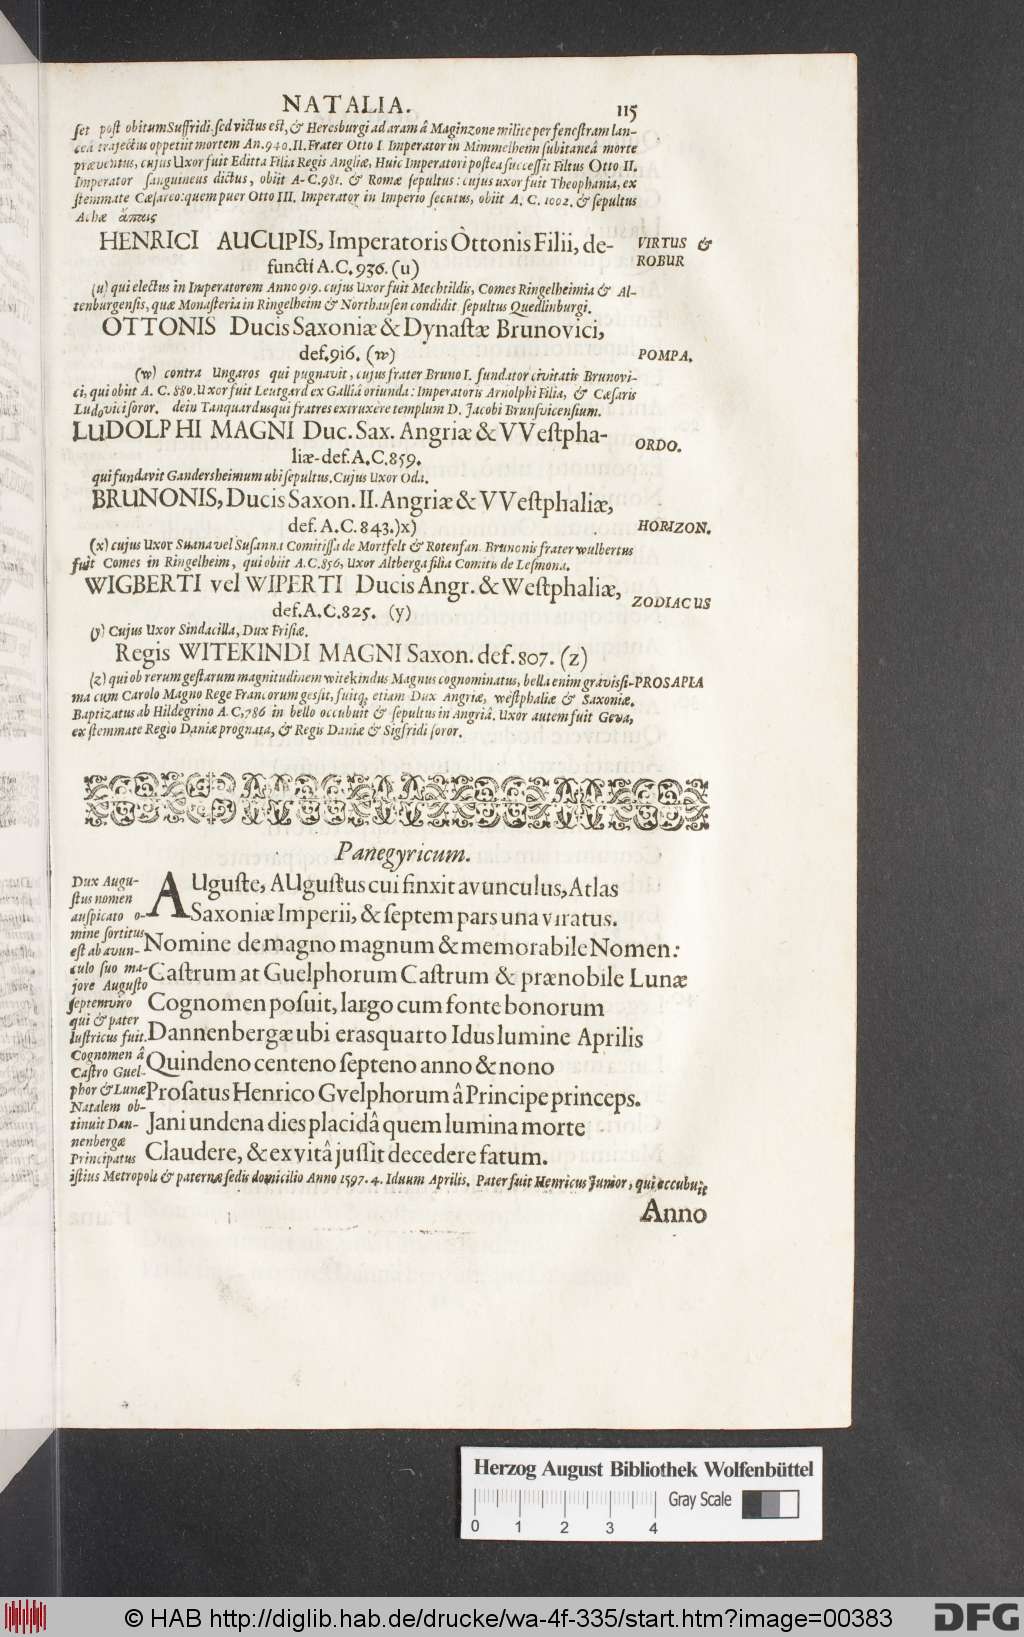 NATALIA. 115
ſet post obitum Suffridi. ſed victus est, & Heresburgi ad aram â Maginzone milite per feneſtram lan-
ceâ trajectus oppetiit mortem An. 940. II. Frater Otto I. Imperator in Mimmelheim ſubitaneâ morte
præventus, cujus Uxor fuit Editta Filia Regis Angliæ, Huic Imperatori poſtea ſucceſſit Filius Otto II.
Imperator ſanguineus dictus, obiit A-C. 981. & Romæ ſepultus: cujus uxor fuit Theophania, ex
ſtemmate Cæſareo: quem puer Otto III. Imperator in Imperio ſecutus, obiit A. C. 1002. & ſepultus
Achæ ἄπαις
HENRICI AUCUPIS, Imperatoris Ottonis Filii, de- VIRTUS &
functi A.C. 936. (u) ROBUR
(u) qui electus in Imperatorem Anno 919. cujus Uxor fuit Mechtildis, Comes Ringelheimia & Al-
tenburgenſis, quæ Monaſteria in Ringelheim & Northauſen condidit ſepultus Quedlinburgi.
OTTONIS Ducis Saxoniæ & Dynaſtæ Brunovici,
def. 916. (w) POMPA.
(w) contra Ungaros qui pugnavit, cujus frater Bruno I. fundator civitatis Brunovi-
ci, qui obiit A. C. 880. Uxor fuit Leutgard ex Galliâ oriunda: Imperatoris Arnolphi Filia, & Cæſaris
Ludovici ſoror. dein Tanquardusqui fratres extruxere templum D. Jacobi Brunſvicenſium.
LUDOLPHI MAGNI Duc. Sax. Angriæ & VVeſtpha- ORDO.
liæ-def. A.C. 859.
qui fundavit Gandersheimum ubi ſepultus. Cujus Uxor Oda.
BRUNONIS, Ducis Saxon. II. Angriæ & VVeſtphaliæ,
def. A.C. 843.)x) HORIZON.
(x) cujus Uxor Suana vel Suſanna Comitiſſa de Mortfelt & Rotenfan. Brunonis frater wulbertus
fuit Comes in Ringelheim, qui obiit A.C. 856, Uxor Altberga filia Comitis de Leſmona.
WIGBERTI vel WIPERTI Ducis Angr. & Weſtphaliæ, ZODIACUS
def. A.C. 825. (y)
(y) Cujus Uxor Sindacilla, Dux Friſiæ.
Regis WITEKINDI MAGNI Saxon. def. 807. (z)
(z) qui ob rerum geſtarum magnitudinem witekindus Magnus cognominatus, bella enim graviſſi- PROSAPIA
ma cum Carolo Magno Rege Francorum geſſit, fuitq; etiam Dux Angriæ, weſtphaliæ & Saxoniæ.
Baptizatus ab Hildegrino A.C, 786 in bello occubuit & ſepultus in Angriâ. Uxor autem fuit Geva,
ex ſtemmate Regio Daniæ prognata, & Regis Daniæ & Sigfridi ſoror.
Panegyricum.
AUguſte, AUguſtus cui finxit avunculus, Atlas
Saxoniæ Imperii, & ſeptem pars una viratus.
Nomine de magno magnum & memorabile Nomen:
Caſtrum at Guelphorum Caſtrum & prænobile Lunæ
Cognomen poſuit, largo cum fonte bonorum
Dannenbergæ ubi eras quarto Idus lumine Aprilis
Quindeno centeno ſepteno anno & nono
Proſatus Henrico Gvelphorum â Principe princeps.
Jani undena dies placidâ quem lumina morte
Claudere, & ex vitâ juſſit decedere fatum.
Dux Augu-
ſtus nomen
auſpicato o-
mine ſortitus
eſt ab avun-
culo ſuo ma-
jore Auguſto
ſeptemviro
qui & pater
luſtricus fuit.
Cognomen â
Caſtro Guel-
phor & Lunæ
Natalem ob-
tinuit Dan-
nenbergæ
Principatus
iſtius Metropoli & paternæ ſedis domicilio Anno 1597. 4. Iduum Aprilis. Pater fuit Henricus Junior, qui occubuit
Anno
Herzog August Bibliothek Wolfenbüttel
Gray Scale
0 1 2 3 4
© HAB http://diglib.hab.de/drucke/wa-4f-335/start.htm?image=00383
DFG